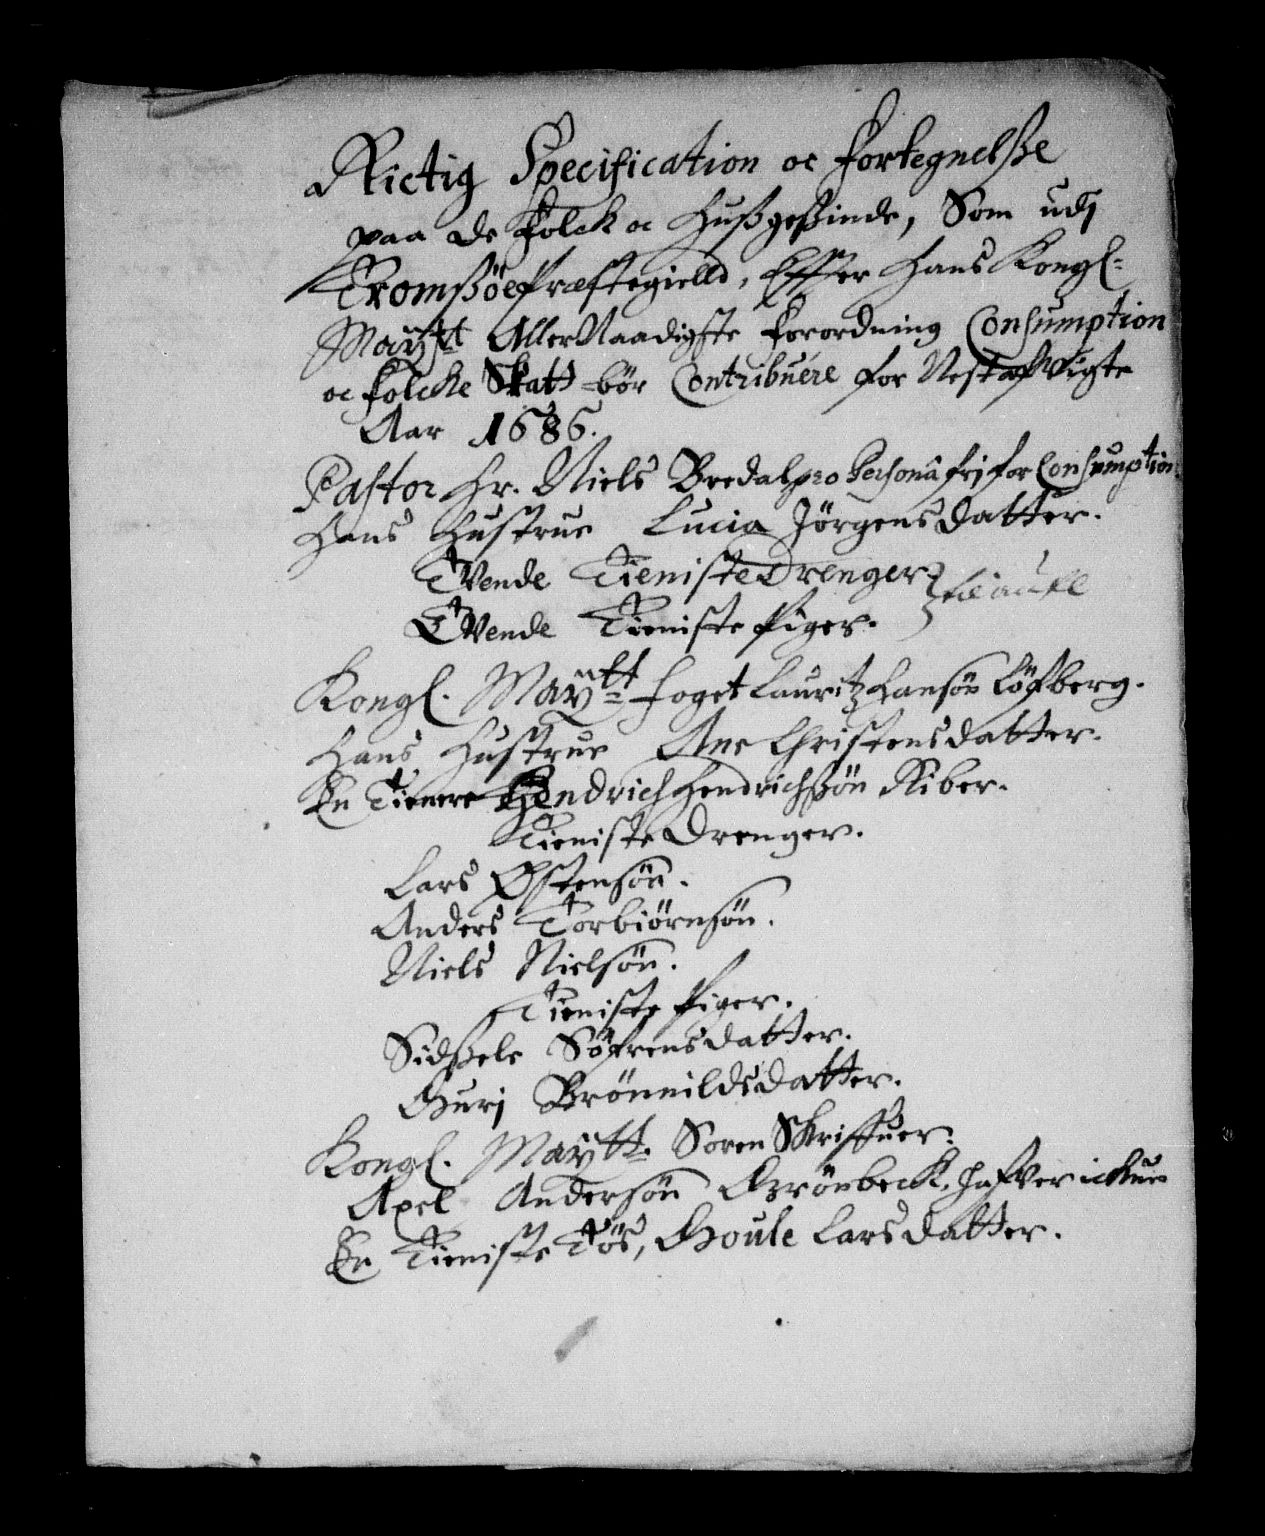 Rictig Specification oc Fortegnelsße
paa de Folck oc Hußgeßinde, Som udj
Tromßöe Præstegielld, Effter Hans Kongl:
Maÿtt Aller Naadigste Forordning Consumption
oc Folcke Skatt bör Contribuére for Nest afvigte
Aar 1686.
Pastor Hr. Niels Bredal pro Persona frj for Consumption
Hans Hustrue Lucia Jörgensdatter.
Tvende Tieniste Drenger
Tvende Tieniste Piger.
Kongl. Maÿtt Foget Lauritz Hansön Löfberg.
Hans Hustrue Ane Christensdatter.
En Tienere Hendrich Hendrichßön Riber.
Tieniste Drenger.
Lars Østensön.
Anders Torbiörnsön.
Niels Nielsön.
Tieniste Piger.
Sidßele Söfrensdatter.
Gurj Brönnildsdatter.
Kongl. Maÿtt. Soren Skriffuer.
Axel Andersön Grönbeck, hafver ickun
En Tieniste Tös, Goule Larsdatter.